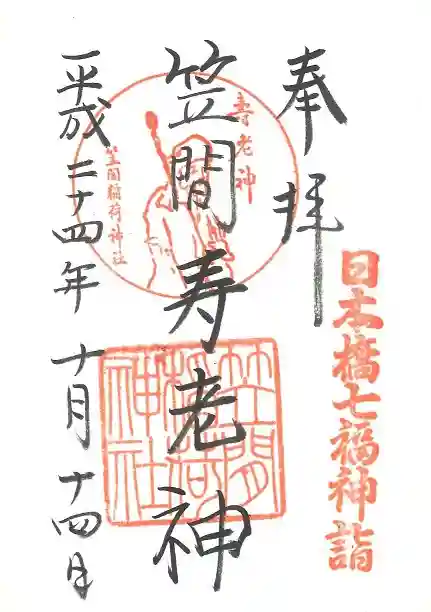 奉拝
日本橋七福神詣
笠間寿老神
寿老神
笠間稲荷神社
笠間稲荷神社
平成二十四年 十月 十四日